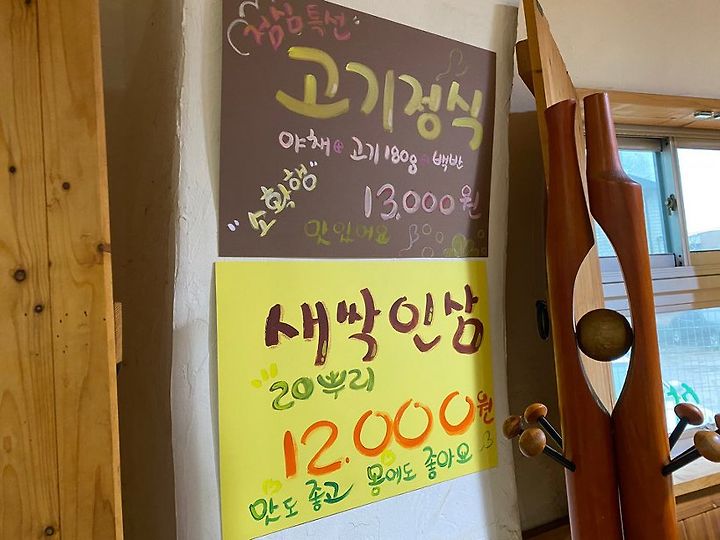 점심특선
고기정식
야채⊕고기180g⊕백반
"소확행"
13.000원
맛있어요
새싹인삼
20뿌리
12.000원
맛도 좋고 몸에도 좋아요